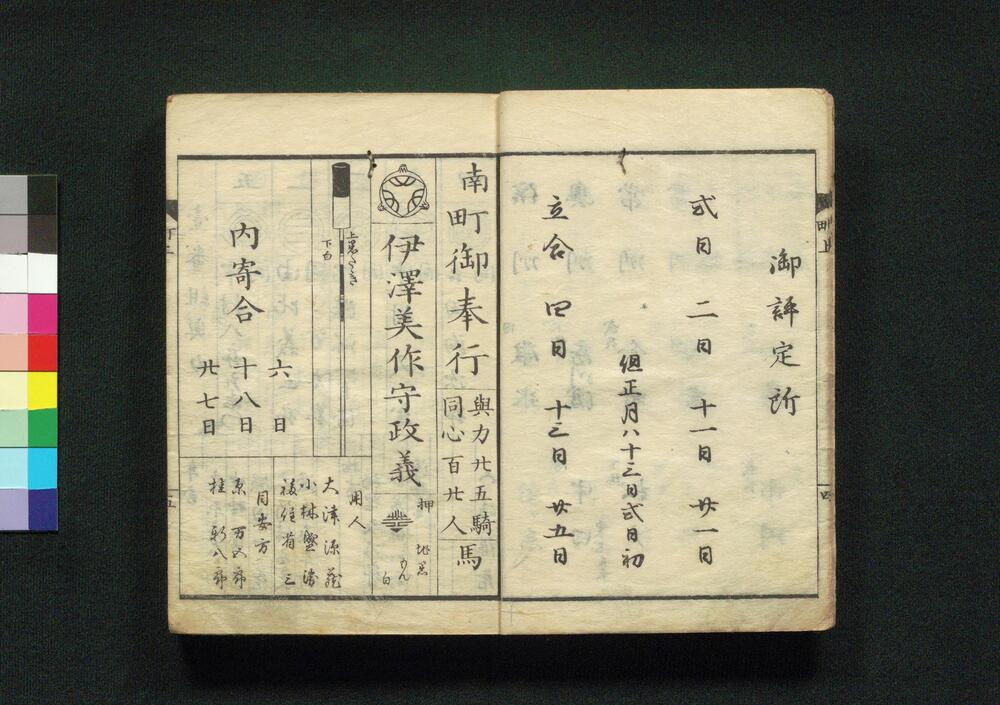 御評定所
式日 二日 十一日 廿一日
但正月ハ十三日式日初
立合 四日 十三日 廿五日
四
南町御奉行
與力廿五騎
同心百廿人
馬
伊澤美作守政義
押
地黒
もん
白
上黒たゝき
下白
用人
大津源蔵
小林盤濤
内寄合
六日
十八日
廿七日
同安方
原万五郎
桂新八郎
五